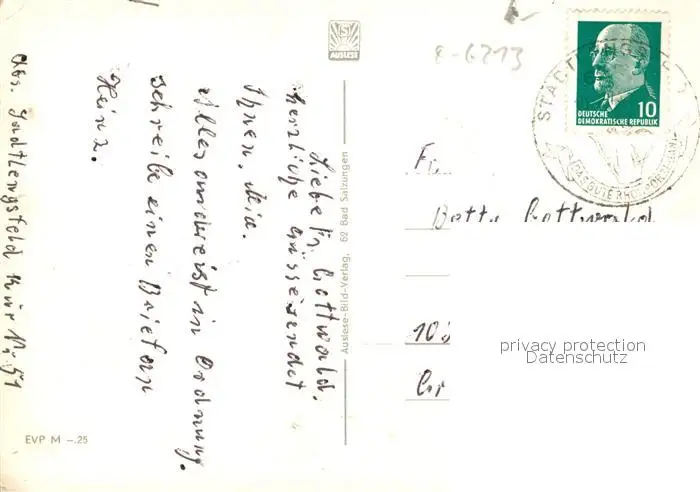 Liebe Fr. Gottwald.
herzliche Grüsse sendet
Ihnen, Mia.
Alles andere ist in Ordnung.
schreibe einen Brief an
Heinz.
Abs. Stadtlengsfeld
Nr. 51
EVP M –.25
Auslese-Bild-Verlag, 62 Bad Salzungen
AUSLESE
8-6213
10
DEUTSCHE
DEMOKRATISCHE REPUBLIK
Fr.
Gottwald
privacy protection
Datenschutz